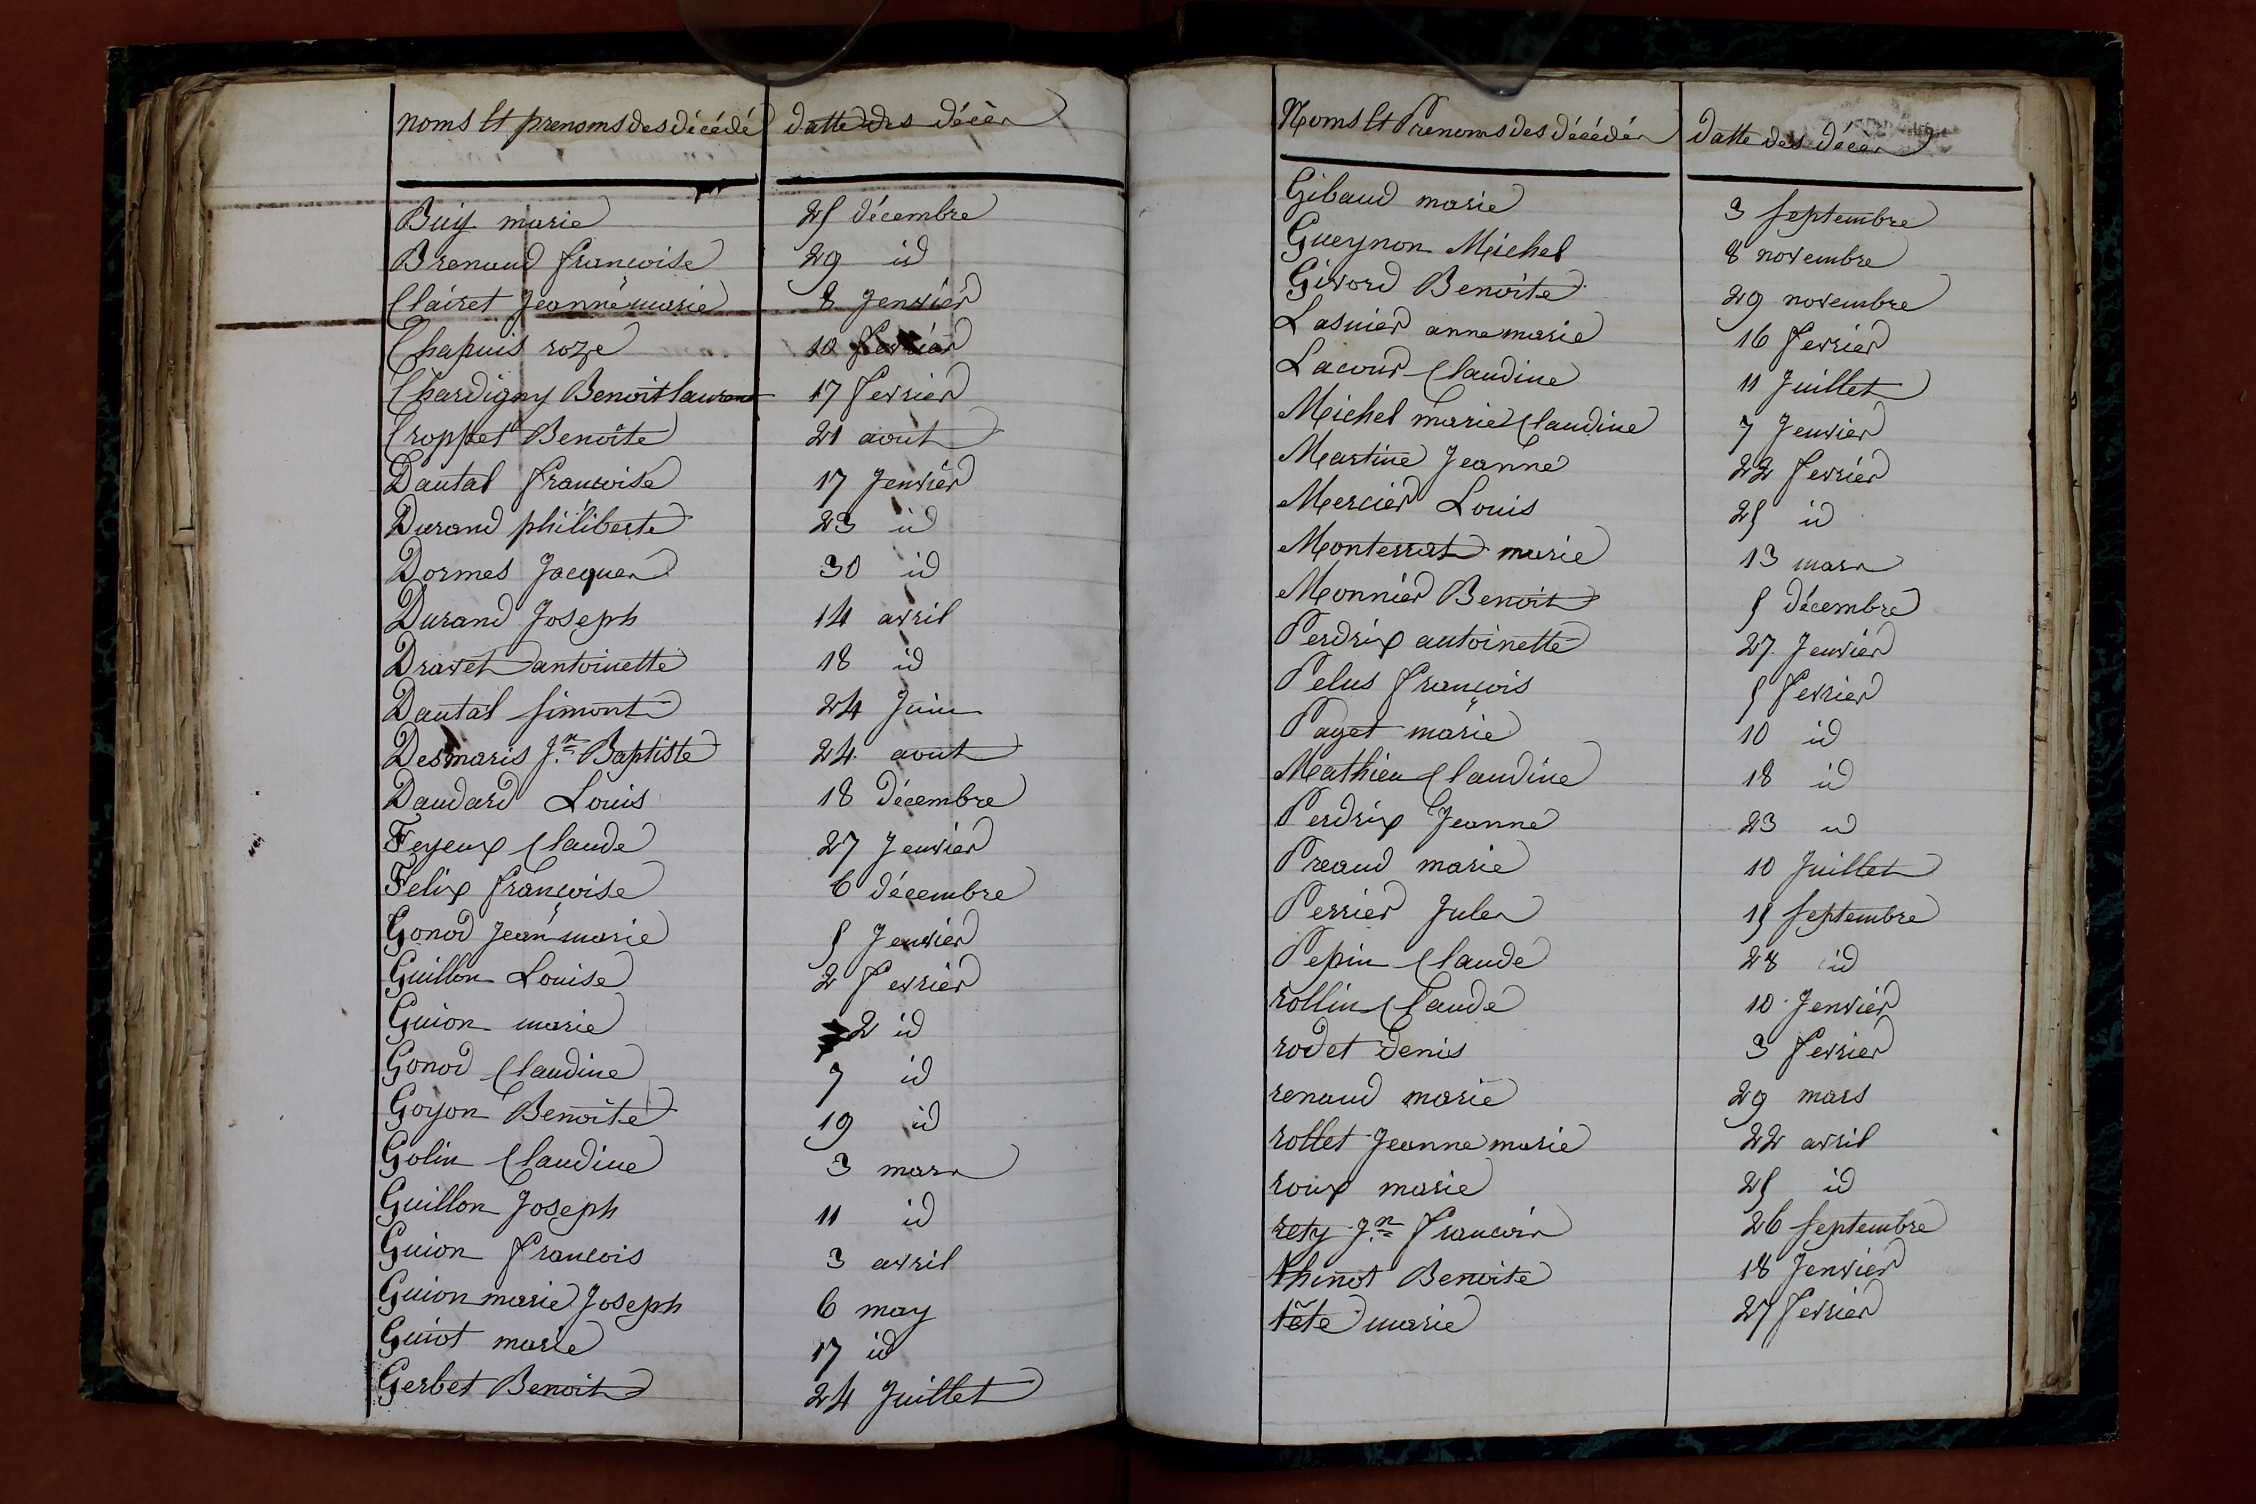 noms et prenoms des décédé datte des décès
Buiy marie 25 décembre
Brenaud francoise 29 id
Clairet Jeanne marie 8 Jenvier
Chapuis roze 10 fevrier
Chardigny Benoit laurent 17 fevrier
Croppet Benoite 21 aout
Dautal francoise 17 Jenvier
Durand philiberte 23 id
Dormes Jacques 30 id
Durand Joseph 14 avril
Dravet antoinette 18 id
Dautal simont 24 Juin
Desmaris Jn Baptiste 24 aout
Daudard Louis 18 décembre
Feyeux Claude 27 Jenvier
Felix françoise 6 décembre
Gonod Jean marie 5 Jenvier
Guillon Louise 2 fevrier
Guion marie 2 id
Gonod Claudine 7 id
Goyon Benoite 19 id
Golin Claudine 3 mars
Guillon Joseph 11 id
Guion francois 3 avril
Guion marie Joseph 6 may
Guiot marie 17 id
Gerbet Benoit 24 Juillet
Noms et Prenoms des décédés datte des décès
Gibaud marie 3 septembre
Gueynon Michel 8 novembre
Givord Benoite 29 novembre
Lasnier anne marie 16 fevrier
Lacour Claudine 11 Juillet
Michel marie Claudine 7 Jenvier
Martine Jeanne 22 fevrier
Mercier Louis 25 id
Monterrat marie 13 mars
Monnier Benoit 5 décembre
Perdrix antoinette 27 Jenvier
Pelus françois 5 fevrier
Paget marie 10 id
Mathieu Claudine 18 id
Perdrix Jeanne 23 id
Preaud marie 10 Juillet
Perrier Jules 15 septembre
Pepin Claude 28 id
rollin Claude 10 Jenvier
rodet denis 3 fevrier
renaud marie 29 mars
rollet Jeanne marie 22 avril
roux marie 25 id
rety Jn francois 26 septembre
thinot Benoite 18 Jenvier
tête marie 27 fevrier